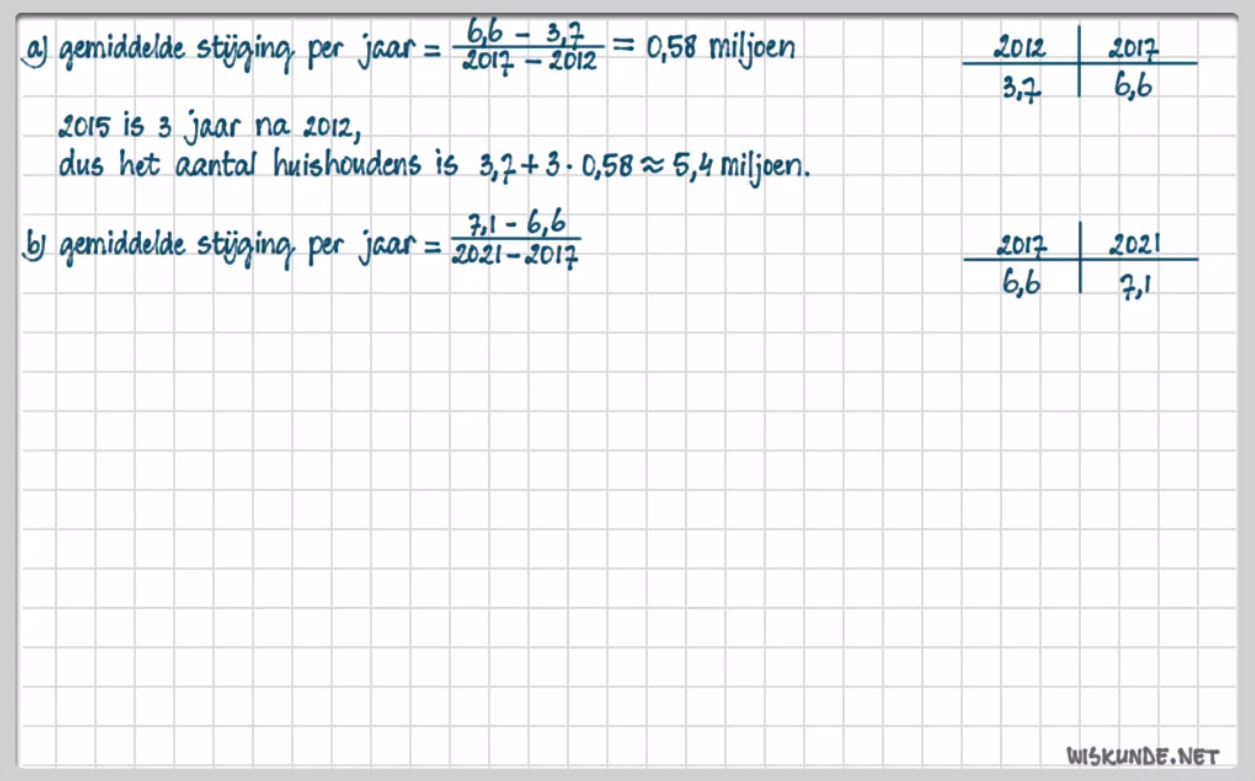 a) gemiddelde stijging per jaar = (6,6 - 3,7)/(2017 - 2012) = 0,58 miljoen
2012 | 2017
3,7 | 6,6
2015 is 3 jaar na 2012,
dus het aantal huishoudens is 3,7 + 3 · 0,58 ≈ 5,4 miljoen.
b) gemiddelde stijging per jaar = (7,1 - 6,6)/(2021 - 2017)
2017 | 2021
6,6 | 7,1
WISKUNDE.NET